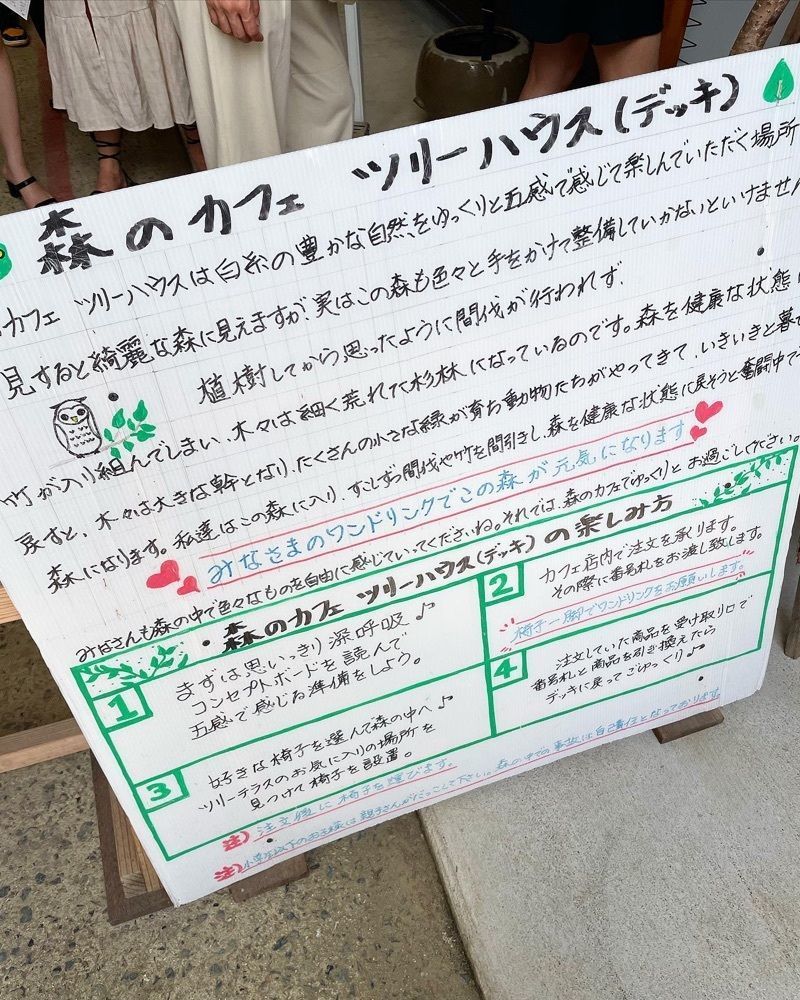 森のカフェ ツリーハウス(デッキ)
カフェ ツリーハウスは白糸の豊かな自然をゆっくりと五感で感じて楽しんでいただく場所
見すると綺麗な森に見えますが、実はこの森も色々と手をかけて整備していかないといけません
植樹してから思ったように間伐が行われず、
竹が入り組んでしまい、木々は細く荒れた杉林になっているのです。森を健康な状態に
戻すと、木々は大きな幹となり、たくさんの小さな緑が育ち動物たちがやってきて、いきいきと暮せ
森になります。私達はこの森に入り、すこしずつ間伐や竹を間引きし、森を健康な状態に戻そうと奮闘中で
みなさまのワンドリンクでこの森が元気になります
みなさんも森の中で色々なものを自由に感じていってくださいね。それでは、森のカフェでゆっくりとお過ごしください。
森のカフェ ツリーハウス(デッキ)の楽しみ方
1
まずは思いっきり深呼吸♪
コンセプトボードを読んで
五感で感じる準備をしよう。
2
カフェ店内で注文を承ります。
その際に番号札をお渡し致します。
椅子一脚でワンドリンクをお願いします。
3
好きな椅子を選んで森の中へ♪
ツリーテラスのお気に入りの場所を
見つけて椅子を設置。
4
注文していた商品を受け取り口で
番号札と商品を引き換えたら
デッキに戻ってごゆっくり♪
注) 注文後に椅子を運びます。
注) 小学生以下のお子様は親子さんがだっこして下さい。森の中での事故は自己責任となっております。